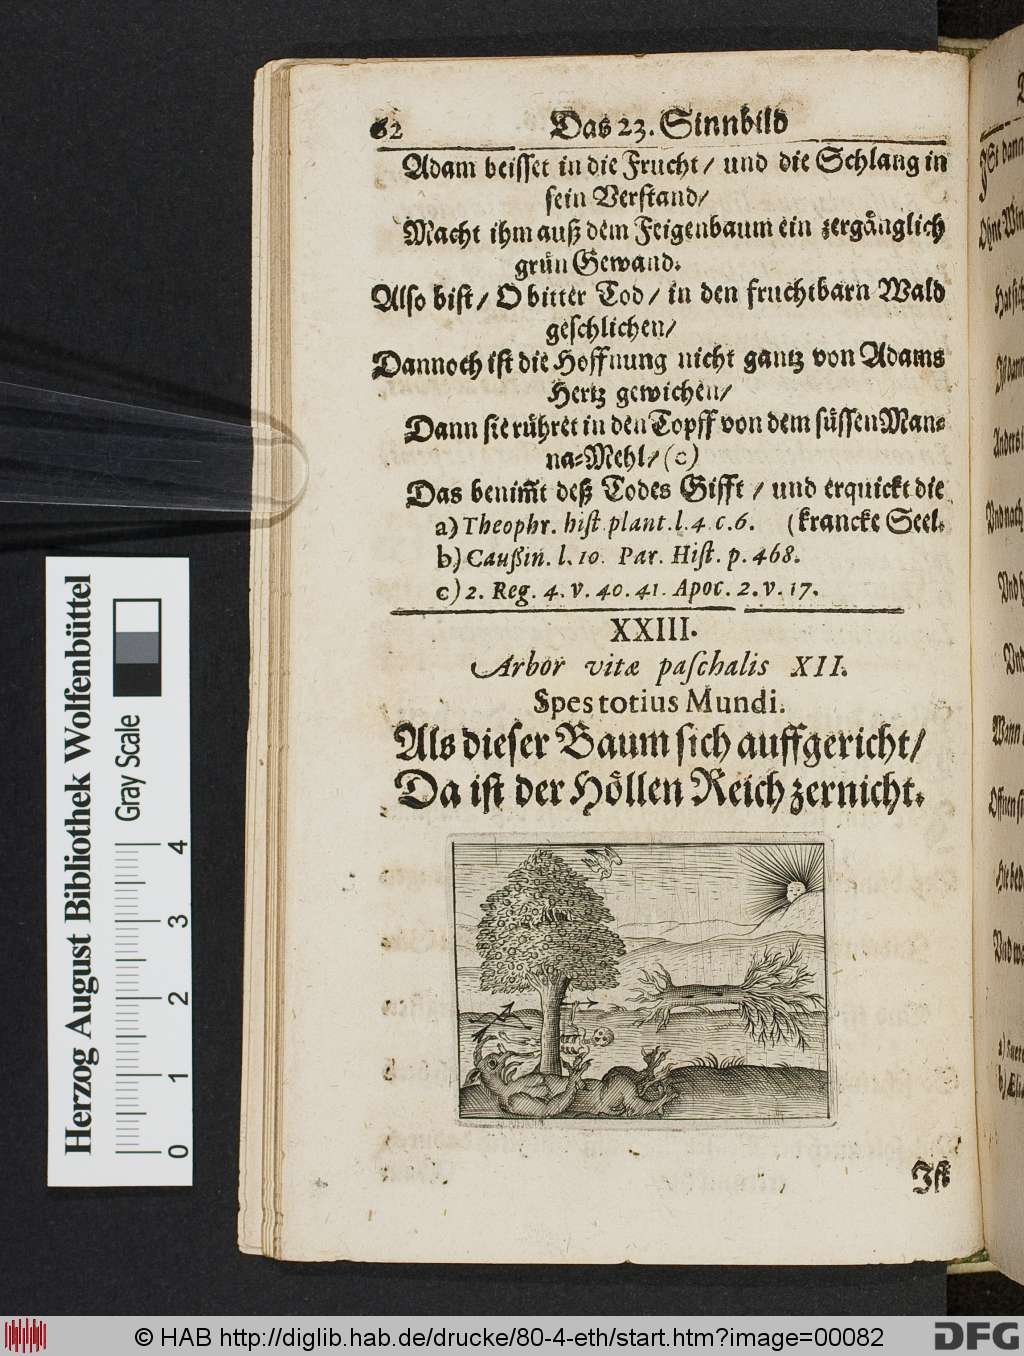 62 Das 23. Sinnbild
Adam beisset in die Frucht / und die Schlang in
sein Verstand /
Macht ihm auß dem Feigenbaum ein zergånglich
grün Gewand.
Also bist / O bitter Tod / in den fruchtbarn Wald
geschlichen /
Dannoch ist die Hoffnung nicht gantz von Adams
Hertz gewichen /
Dann sie rühret in den Topff von dem süssen Man-
na-Mehl / (c)
Das benim̃t deß Todes Gifft / und erquickt die
a) Theophr. hist plant. l. 4 c. 6. (krancke Seel.
b) Caußin. l. 10. Par. Hist. p. 468.
c) 2. Reg. 4. v. 40. 41. Apoc. 2. v. 17.
XXIII.
Arbor vitæ paschalis XII.
Spes totius Mundi.
Als dieser Baum sich auffgericht /
Da ist der Höllen Reich zernicht.
Ist
Herzog August Bibliothek Wolfenbüttel
Gray Scale
0 1 2 3 4
© HAB http://diglib.hab.de/drucke/80-4-eth/start.htm?image=00082
DFG